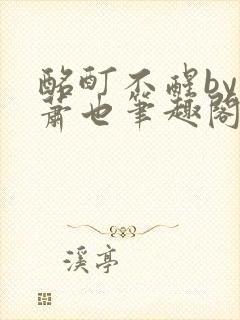 酩酊不醒by
蕭也筆趣閣
溪亭